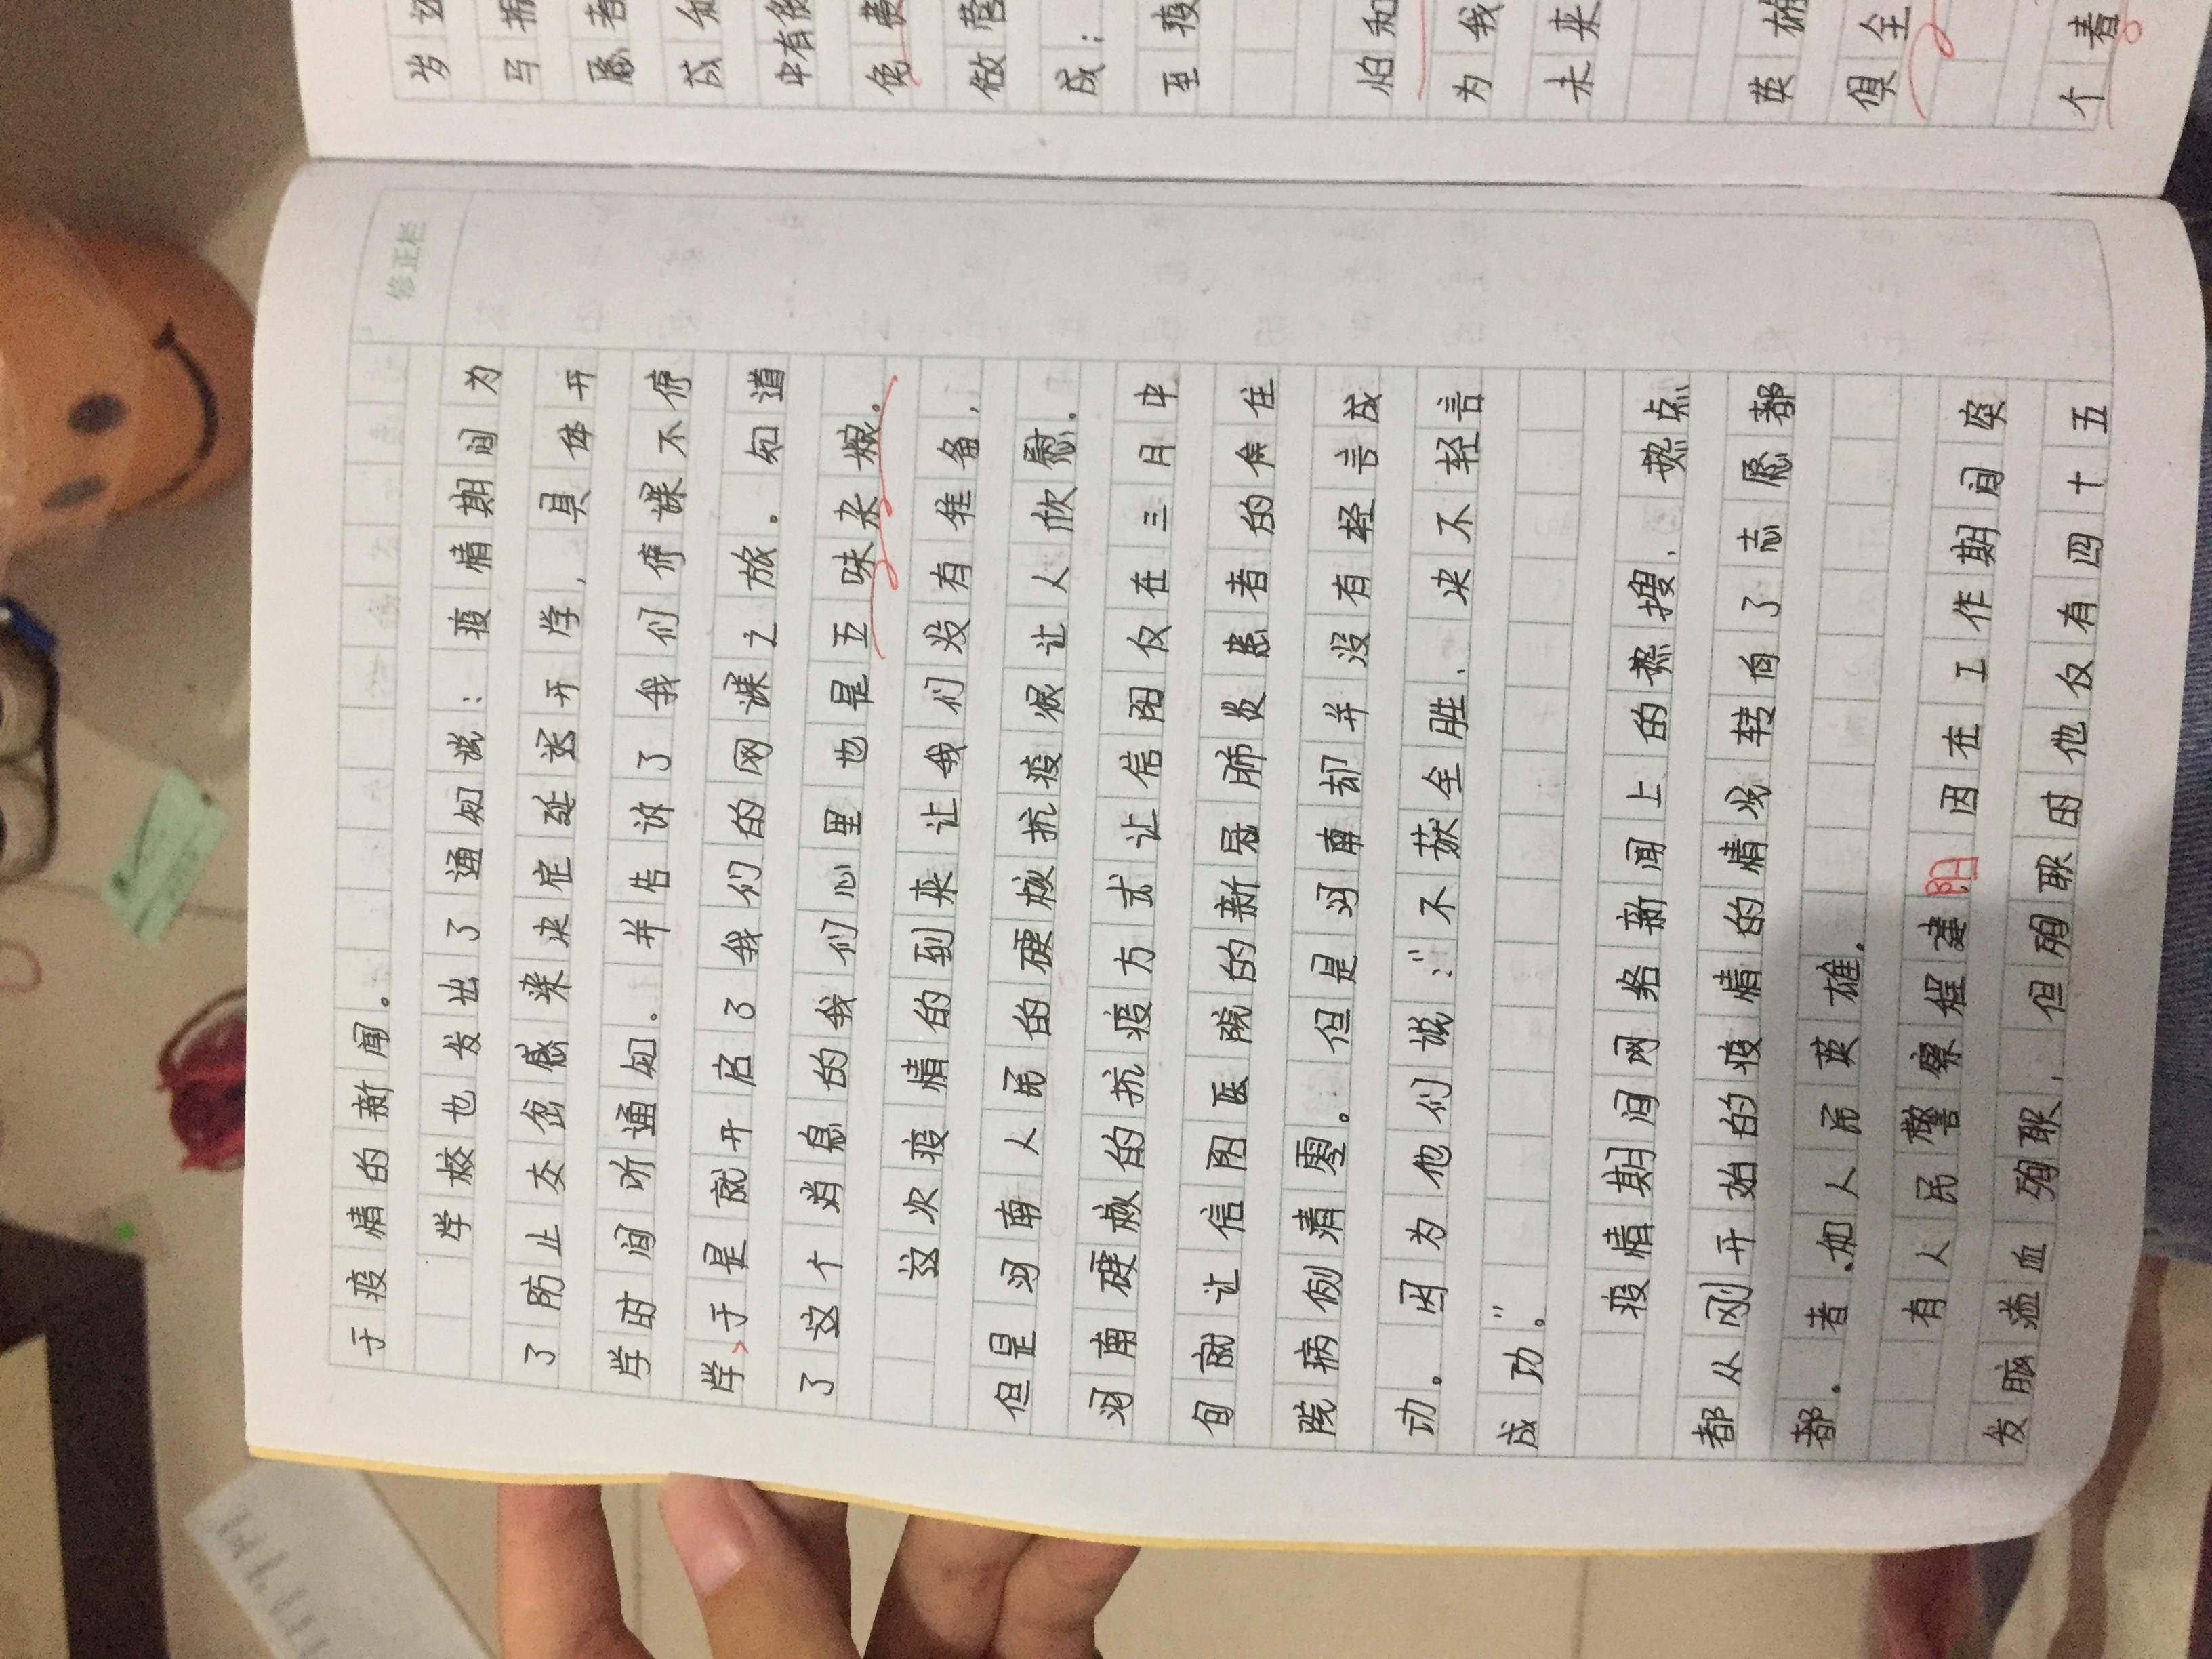 修正栏
于疫情的新闻。
学校也发出了通知说：疫情期间为
了防止交岔感染决定延迟开学，具体开
学时间听通知。并告诉了我们停课不停
学，于是就开启了我们的网课之旅。知道
了这个消息的我们心里也是五味杂粮。
这次疫情的到来让我们没有准备，
但是河南人民的硬核抗疫很让人欣慰。
河南硬核的抗疫方式让信阳仅在三月中
旬就让信阳医院的新冠肺炎患者的住
院病例清零。但是河南却并没有轻言成
功。因为他们说：“不获全胜，决不轻言
成功。”
疫情期间网络新闻上的热搜，热点
都从刚开始的疫情的情况转向了志愿都
都。者.如人民英雄。
有人民警察程建阳因在工作期间突
发脑溢血殉职，但殉职时他仅有四十五
岁
马
愿者
成
中有
免费
做
成：
至疫
怕和
为我
未来
英雄
俱全
个着